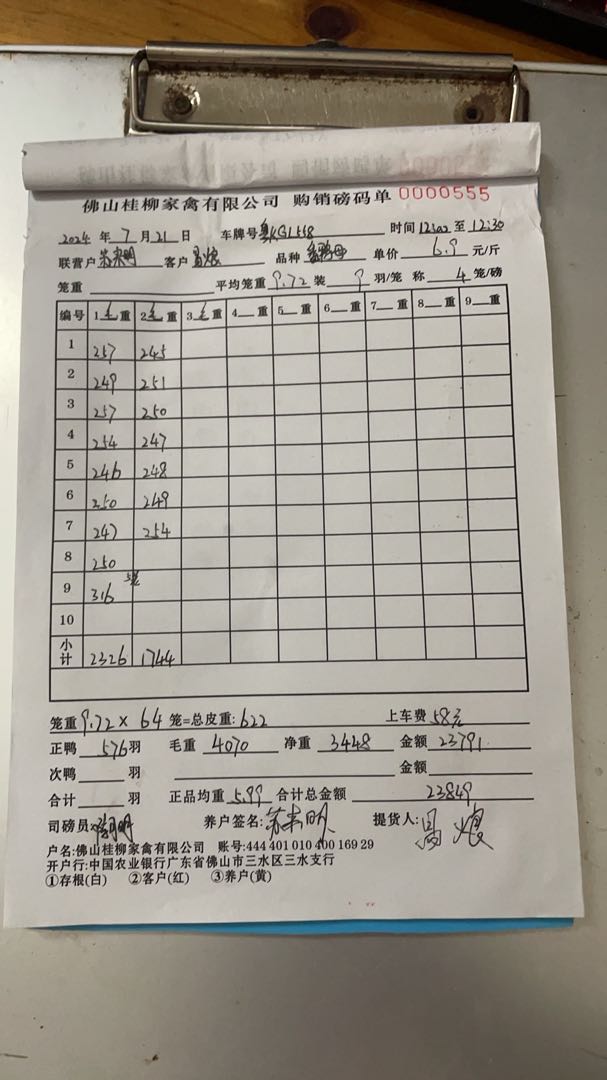 佛山桂柳家禽有限公司 购销磅码单 0000555
2024 年 7 月 21 日 车牌号 粤KG1558 时间 12:02 至 12:30
联营户 客户 品种 单价 6.9 元/斤
笼重 平均笼重 9.72 装 9 羽/笼 称 4 笼/磅
编号 1 毛 重 2 毛 重 3 毛 重 4 重 5 重 6 重 7 重 8 重 9 重
1 257 245
2 249 251
3 257 250
4 254 247
5 246 248
6 250 249
7 247 254
8 250
9 316 5笼
10
小计 2326 1744
笼重 9.72 × 64 笼=总皮重: 622 上车费 58元
正鸭 576 羽 毛重 4070 净重 3448 金额 23791
次鸭 羽 金额
合计 羽 正品均重 5.99 合计总金额 23849
司磅员: 养户签名: 提货人:
户名:佛山桂柳家禽有限公司 账号:444 401 010 400 169 29
开户行:中国农业银行广东省佛山市三水区三水支行
①存根(白) ②客户(红) ③养户(黄)